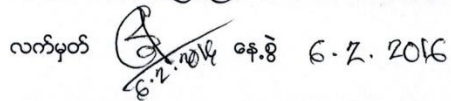 လက်မှတ် 6.2.2016 နေ့စွဲ 6.2.2016